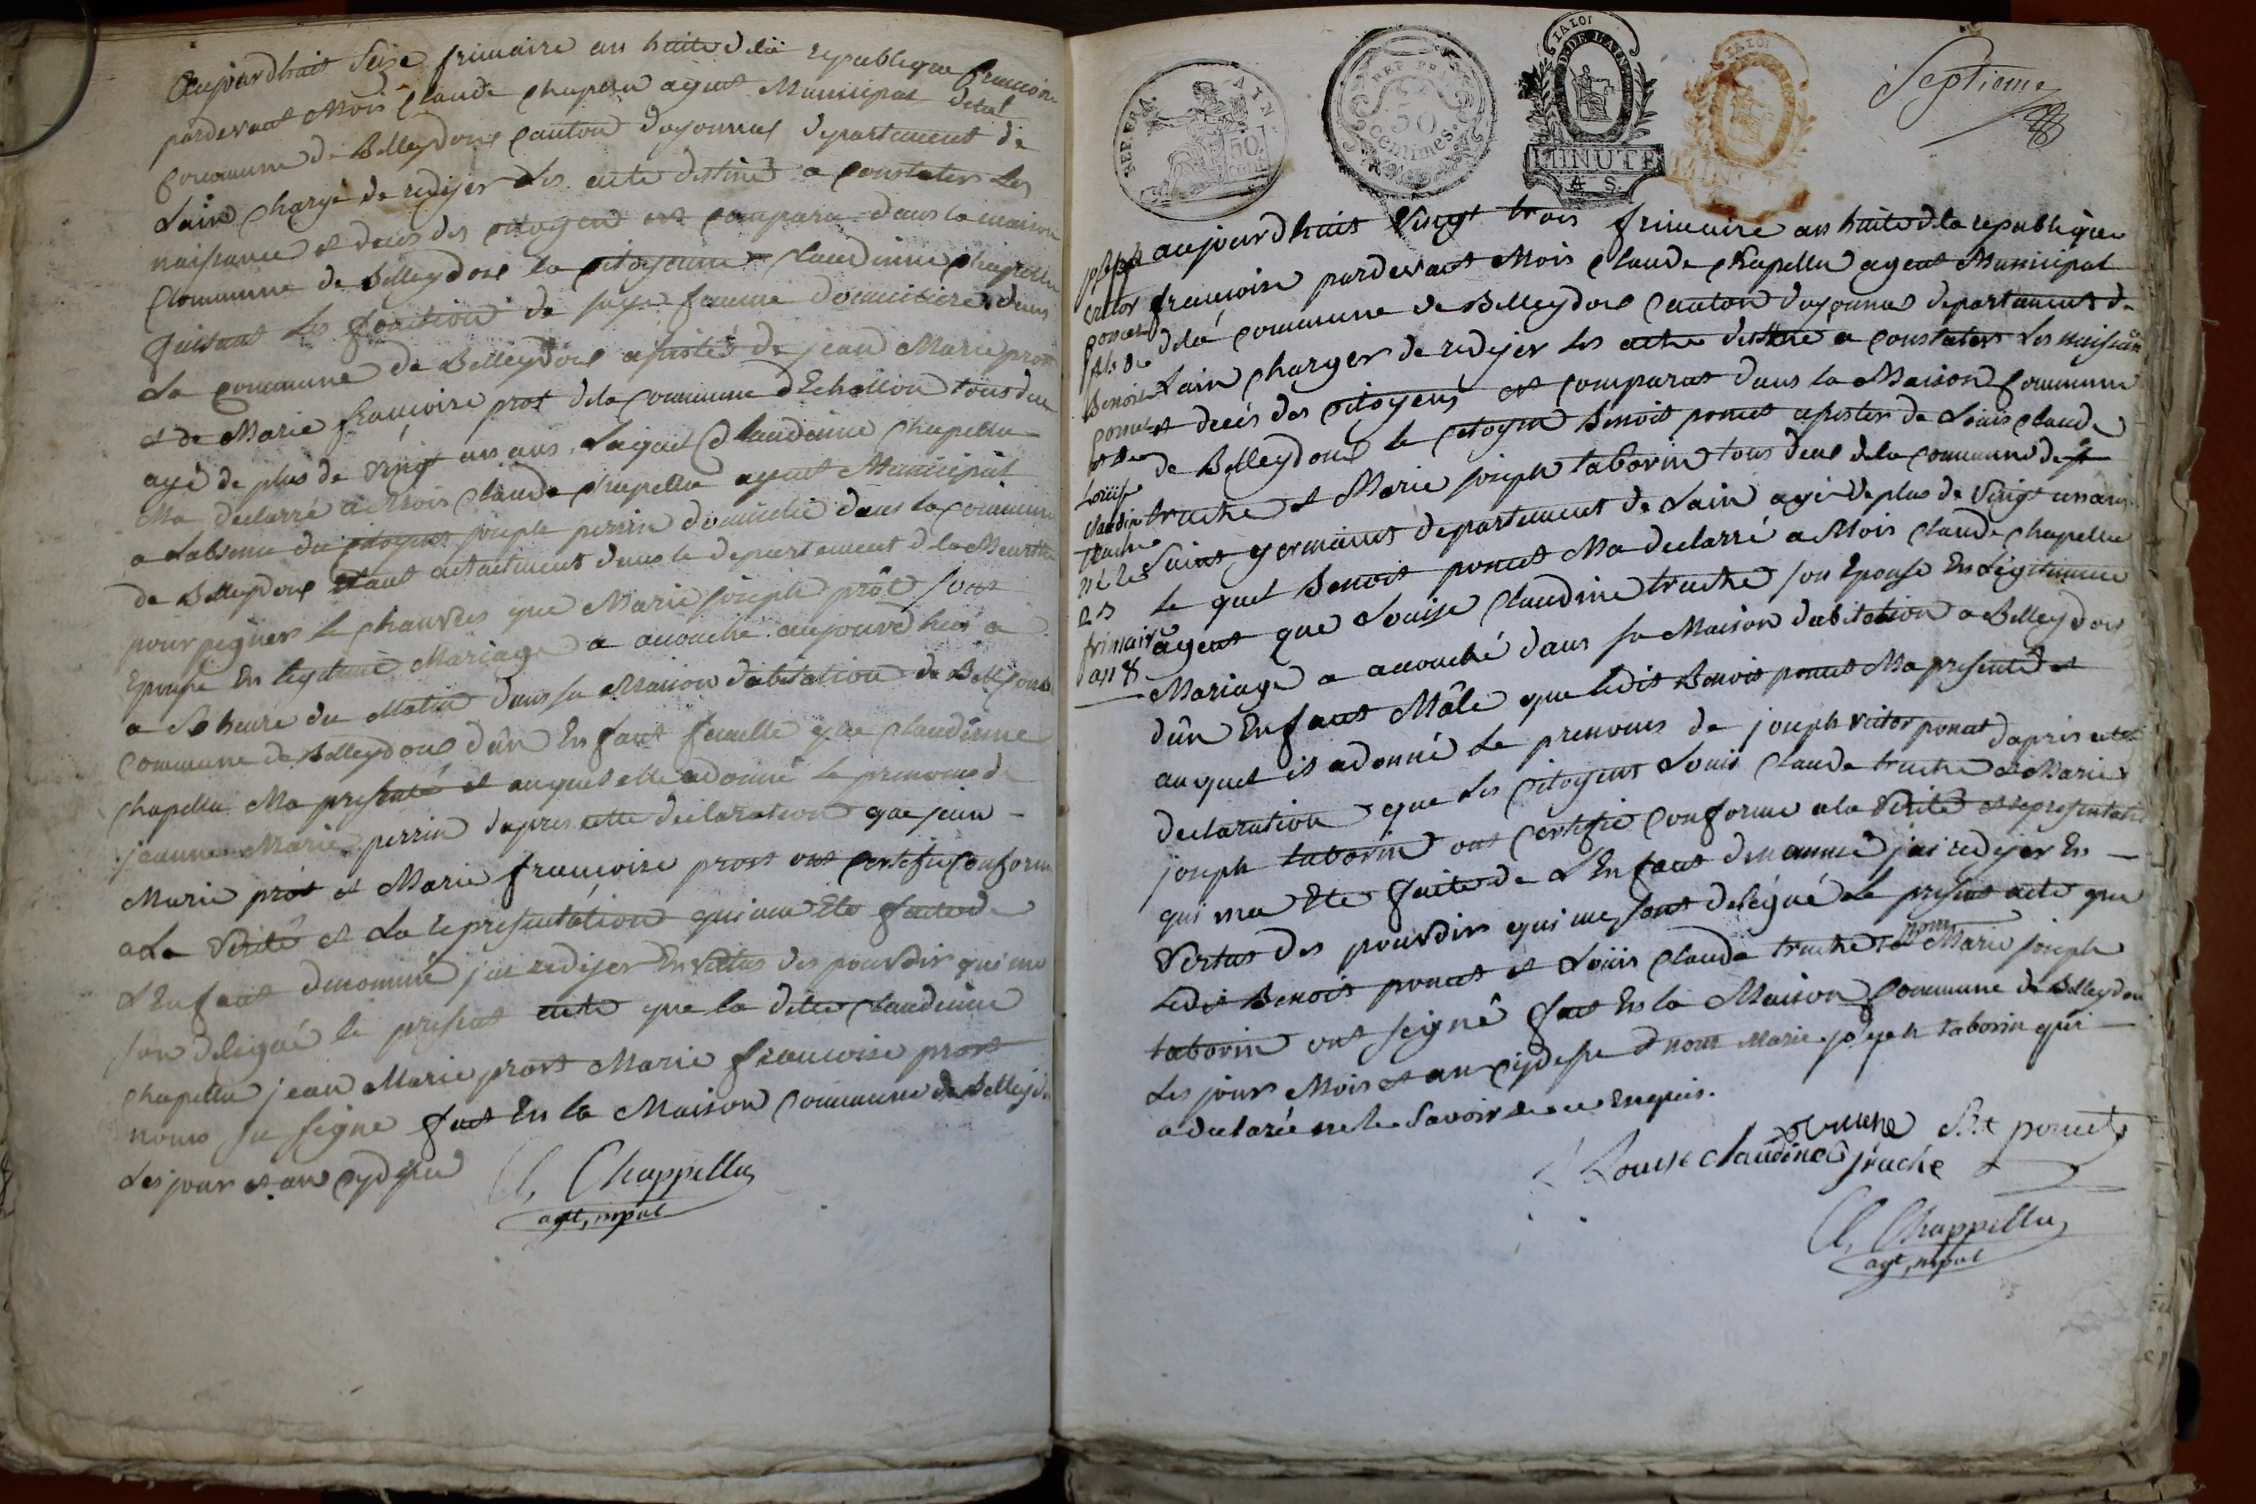 aujourdhuit Seize frimaire an huite dela republique francoise
pardevant Mois Claude Chapella agent Municipal de la
Commune de Belleydoux Canton doyonnas departement de
Lain Chargé de redijer Les acte destiné a Constater Les
naissance et deces des citoyens est Comparu dans la maison
Commune de Belleydoux la Citoyenne Claudinne Chapella
faisant Les fonction de sage femme domicilieé dans
La Commune de Belleydoux assisté de jean Marie prost
et de Marie francoise prost dela Commune dEchallon tous deux
agé de plus de vingt un ans, Laquel Claudinne Chapella
Ma declarré a Mois Claude Chapella agent Municipal
a Labsence du citoyen joseph perrin domicilié dans la Commune
de Belleydoux Etant actuelment dans le departement dela Meurthe
pour pegner le Chanvres que Marie joseph prôt sont
Epouse En legitime Mariage a acouché aujourdhui a
a Sept heure du Matin dans sa Maison dabitation de
Commune de Belleydoux dûn Enfant femelle que Claudinne
Chapella Ma presenté et auquel elle adonné le prenoms de
jeanne Marie perrin dapres cette declaration que jean
Marie prôt et Marie francoise prost ont Certifié Conforme
a La verité et La representation qui ma Eté faite de
LEnfant denommé jai redijer En vertus des pouvdir qui me
son delegué le present acte que la dite Claudinne
Chapella jean Marie prost Marie francoise prost
nons su signe fait En la Maison Commune de Belleydoux
Les jour et an cydessu
Cl, Chappellu
agt, mpal
REP. FRA.
AIN.
REP. FRA.
50
centimes
LA LOI
MINUTE
A S.
LA LOI
MINUTE
Septieme
aujourdhuit Vingt trois frimaire an huite dela republique
francoise pardevant Mois Claude Chapella agent Municipal
dela Commune de Belleydoux Canton doyonnas departement de
Lain Charger de redijer Les acthe destiné a Constater Les naissance
et decés des citoyens est Comparut dans la Maison Commune
de Belleydoux le Citoyen Benoit poncet assister de Louis Claude
truche et Marie joseph taborin tous deux dela Commune de st
Saint germains departement de Lain agé de plus de Vingt un ans
Le quel Benoit poncet Ma declarré a Mois Claude Chapella
agent que Louise Claudine truche son Epouse En Légitimme
Mariage a acouché dans sa Maison dabitation a Belleydoux
dûn Enfant Mâle que ledit Benoit poncet Ma presenté et
auquel il adonné Le prenoms de joseph victor poncet dapris cette
declaration que Les Citoyens Louis Claude truche et Marie
joseph taborin ont Certifié Conforme a la verité et representation
qui ma Eté faite de LEnfant denommé jai redijer En
vertus des pouvdir qui me sont delégué Le present acte que
Ledit Benoit poncet et Louis Claude truche et non Marie joseph
taborin ont seigné fait En la Maison Commune de Belleydoux
Les jour Mois et an cydessu et nom Marie joseph taborin qui
a declaré ne le Savoir de ce Enquis.
jph
victor
poncet
fils de
Benoit
poncet
et de
Louise
claudine
truche
né le
23
frimaire
an 8
truche Bt poncet
Louise claudine truche
Cl, Chappellu
agt, mpal